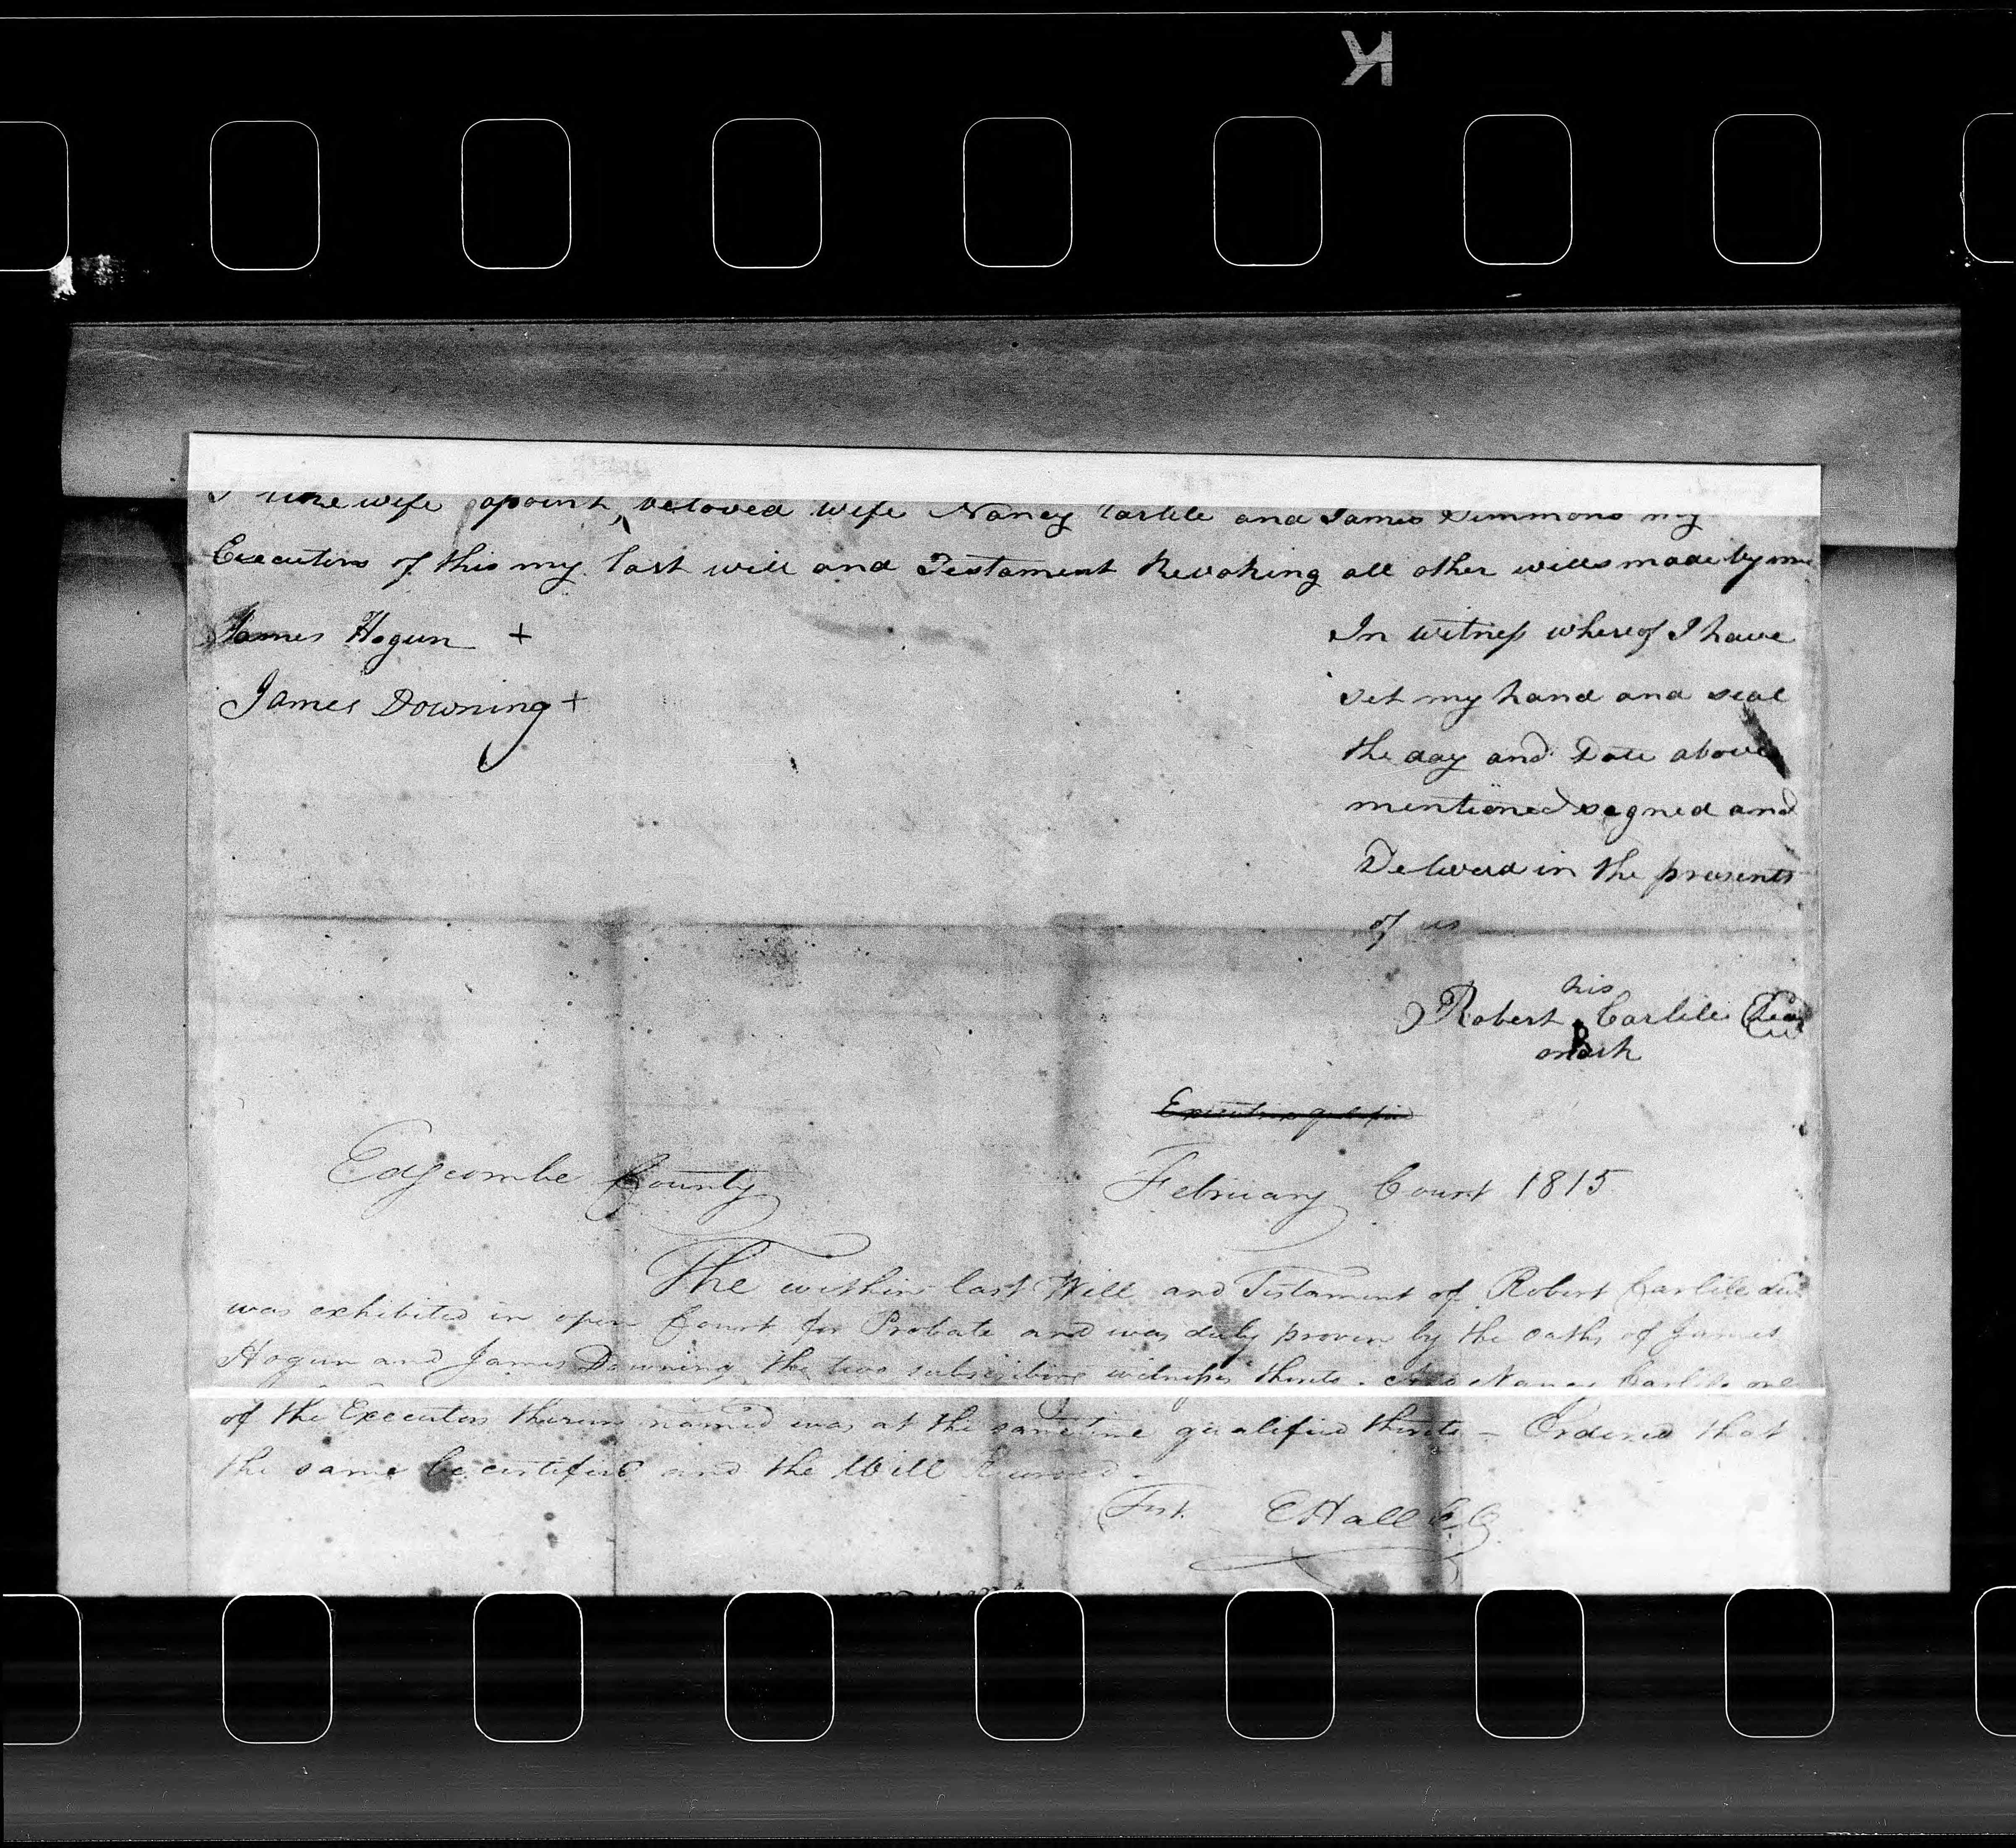 I likewife apoint beloved wife Nancy Carlile and James Simmons my
Executors of this my last will and Testament Revoking all other wills made by me
James Hogun +
In witness whereof I have
James Downing +
set my hand and seal
the day and Date above
mentioned sagned and
Deleverd in the presents
of us
his
Robert Carlile Seal
B
mark
Edgcombe County
February Court 1815
The within last Will and Testament of Robert Carlile
was exhibited in open Court for Probate and was duly proven by the oaths of James
Hogun and James Downing the two subscribing witnesses thereto. And Nancy Carlile one
of the Executors therein named was at the same time qualified thereto - Ordered that
the same be certified and the Will
Test. E Hall C.C.
K